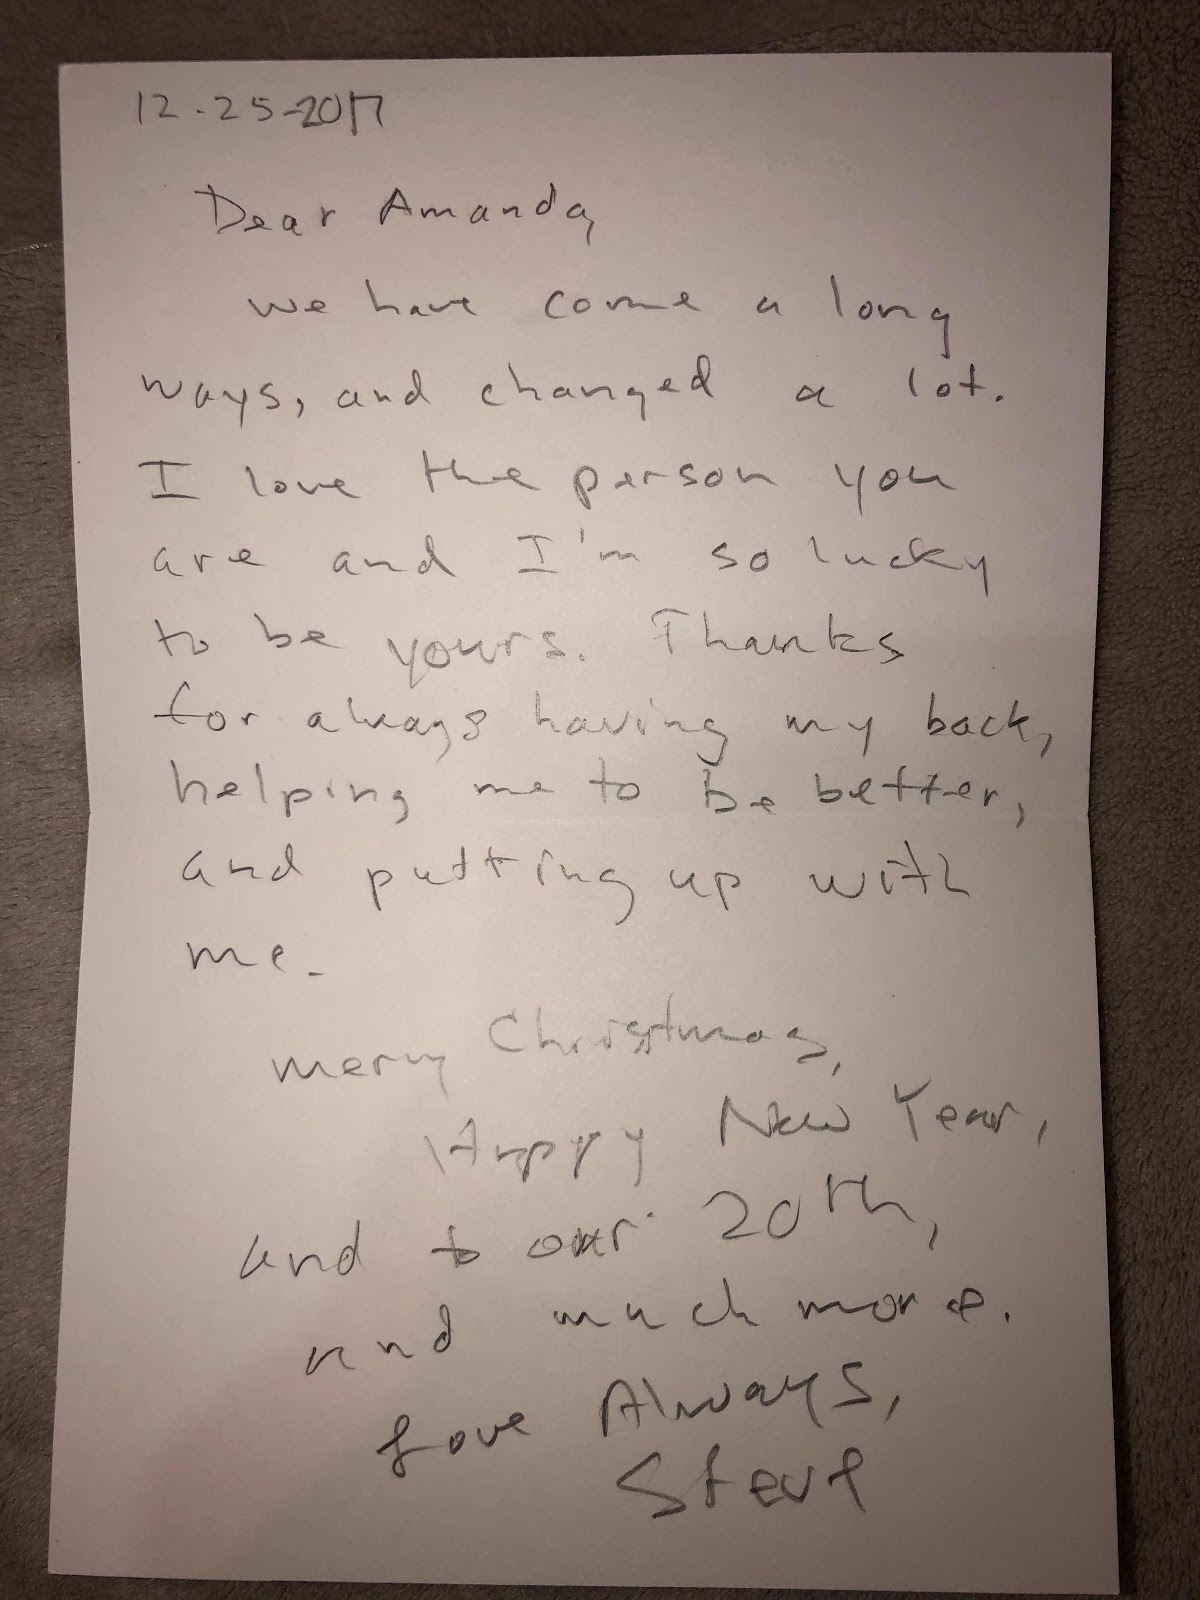 12-25-2017
Dear Amanda,
we have come a long
ways, and changed a lot.
I love the person you
are and I'm so lucky
to be yours. Thanks
for always having my back,
helping me to be better,
and putting up with
me.
merry Christmas,
Happy New Year,
and to our 20th,
and much more.
Love Always,
Steve